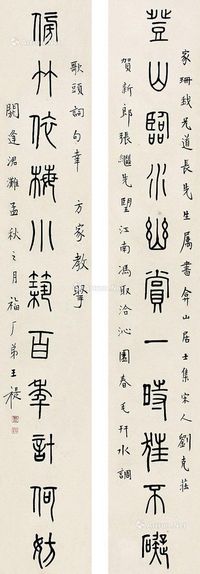 登山臨水幽賞一時狂不礙
家珊兄道長先生屬書弇山居士集宋人劉克莊
賀新郎張繼先望江南馮取洽沁園春毛幵水調
傍竹依梅小築百年計何妨
歌頭詞句幸 方家教
閼逢涒灘孟秋之月福厂弟王禔